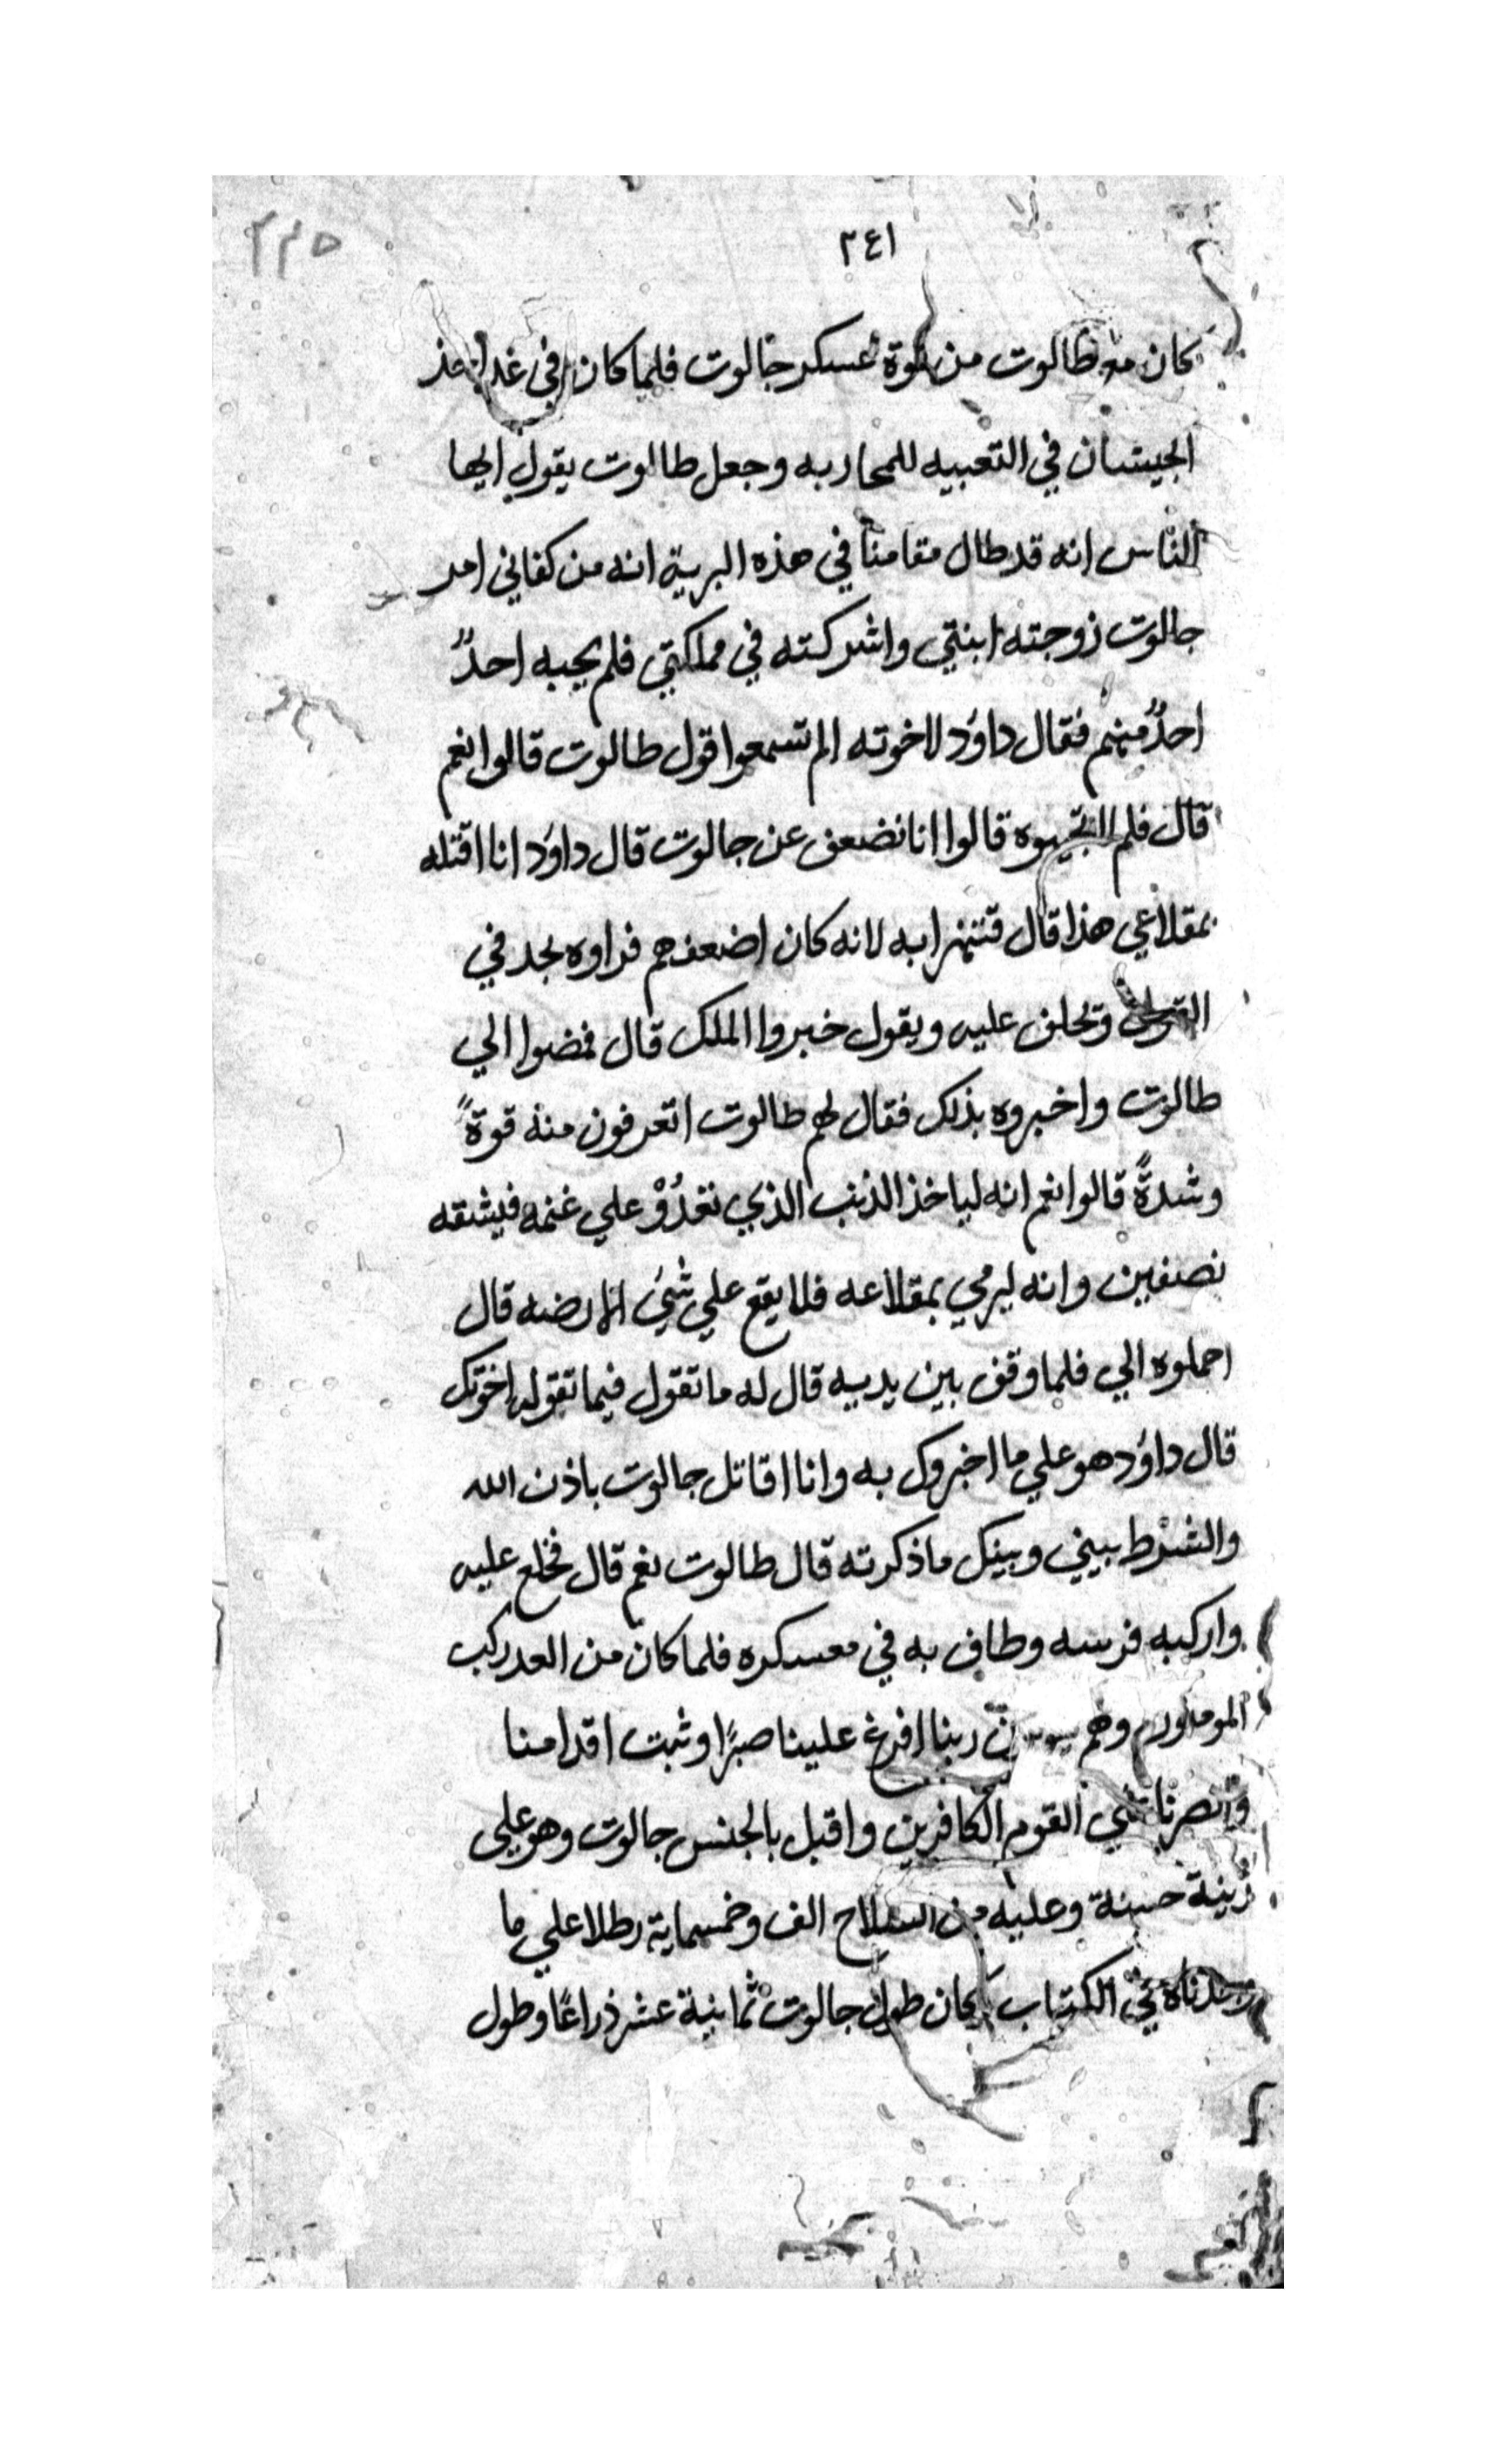 ٢٤١
٢٢٥
كان مع طالوت من قوة عسكر جالوت فلما كان في غد اخذ
الجيشان في التعبيه للمحاربه وجعل طالوت يقول ايها
الناس انه قد طال مقامنا في هذه البرية انه من كفاني امر
جالوت زوجته ابنتي واشركته في مملكتي فلم يجبه احدٌ
احدٌ منهم فقال داوٗد لاخوته الم تسمعوا قول طالوت قالوا نعم
قال فلم لا تجيبوه قالوا انا نضعف عن جالوت قال داوٗد انا اقتله
بمقلاعي هذا قال به لانه كان اضعفهم فراوه يجد في
القول وتحلف عليه ويقول خبروا الملك قال فمضوا الي
طالوت واخبروه بذلك فقال لهم طالوت اتعرفون منه قوةً
وشدةً قالوا نعم انه لياخذ الذئب الذي تغدُوْ علي غنمه فيشقه
نصفين وانه ليرمي بمقلاعه فلا يقع علي شئ الا رضه قال
احملوه الي فلما وقف بين يديه قال له ما تقول فيما تقوله اخوتك
قال داوٗد هو علي ما اخبروك به وانا اقاتل جالوت باذن الله
والشرط بيني وبينك ما ذكرته قال طالوت نعم قال فخلع عليه
واركبه فرسه وطاف به في معسكره فلما كان من الغد ركب
وهم ربنا افرغ علينا صبرًا وثبت اقدامنا
وانصرنا علي القوم الكافرين واقبل بالجنس جالوت وهو علي
زينة حسنة وعليه من السلاح الف وخمسماية رطلا علي ما
وجدناه في الكتاب كان طول جالوت ثمانية عشر ذراعًا وطول